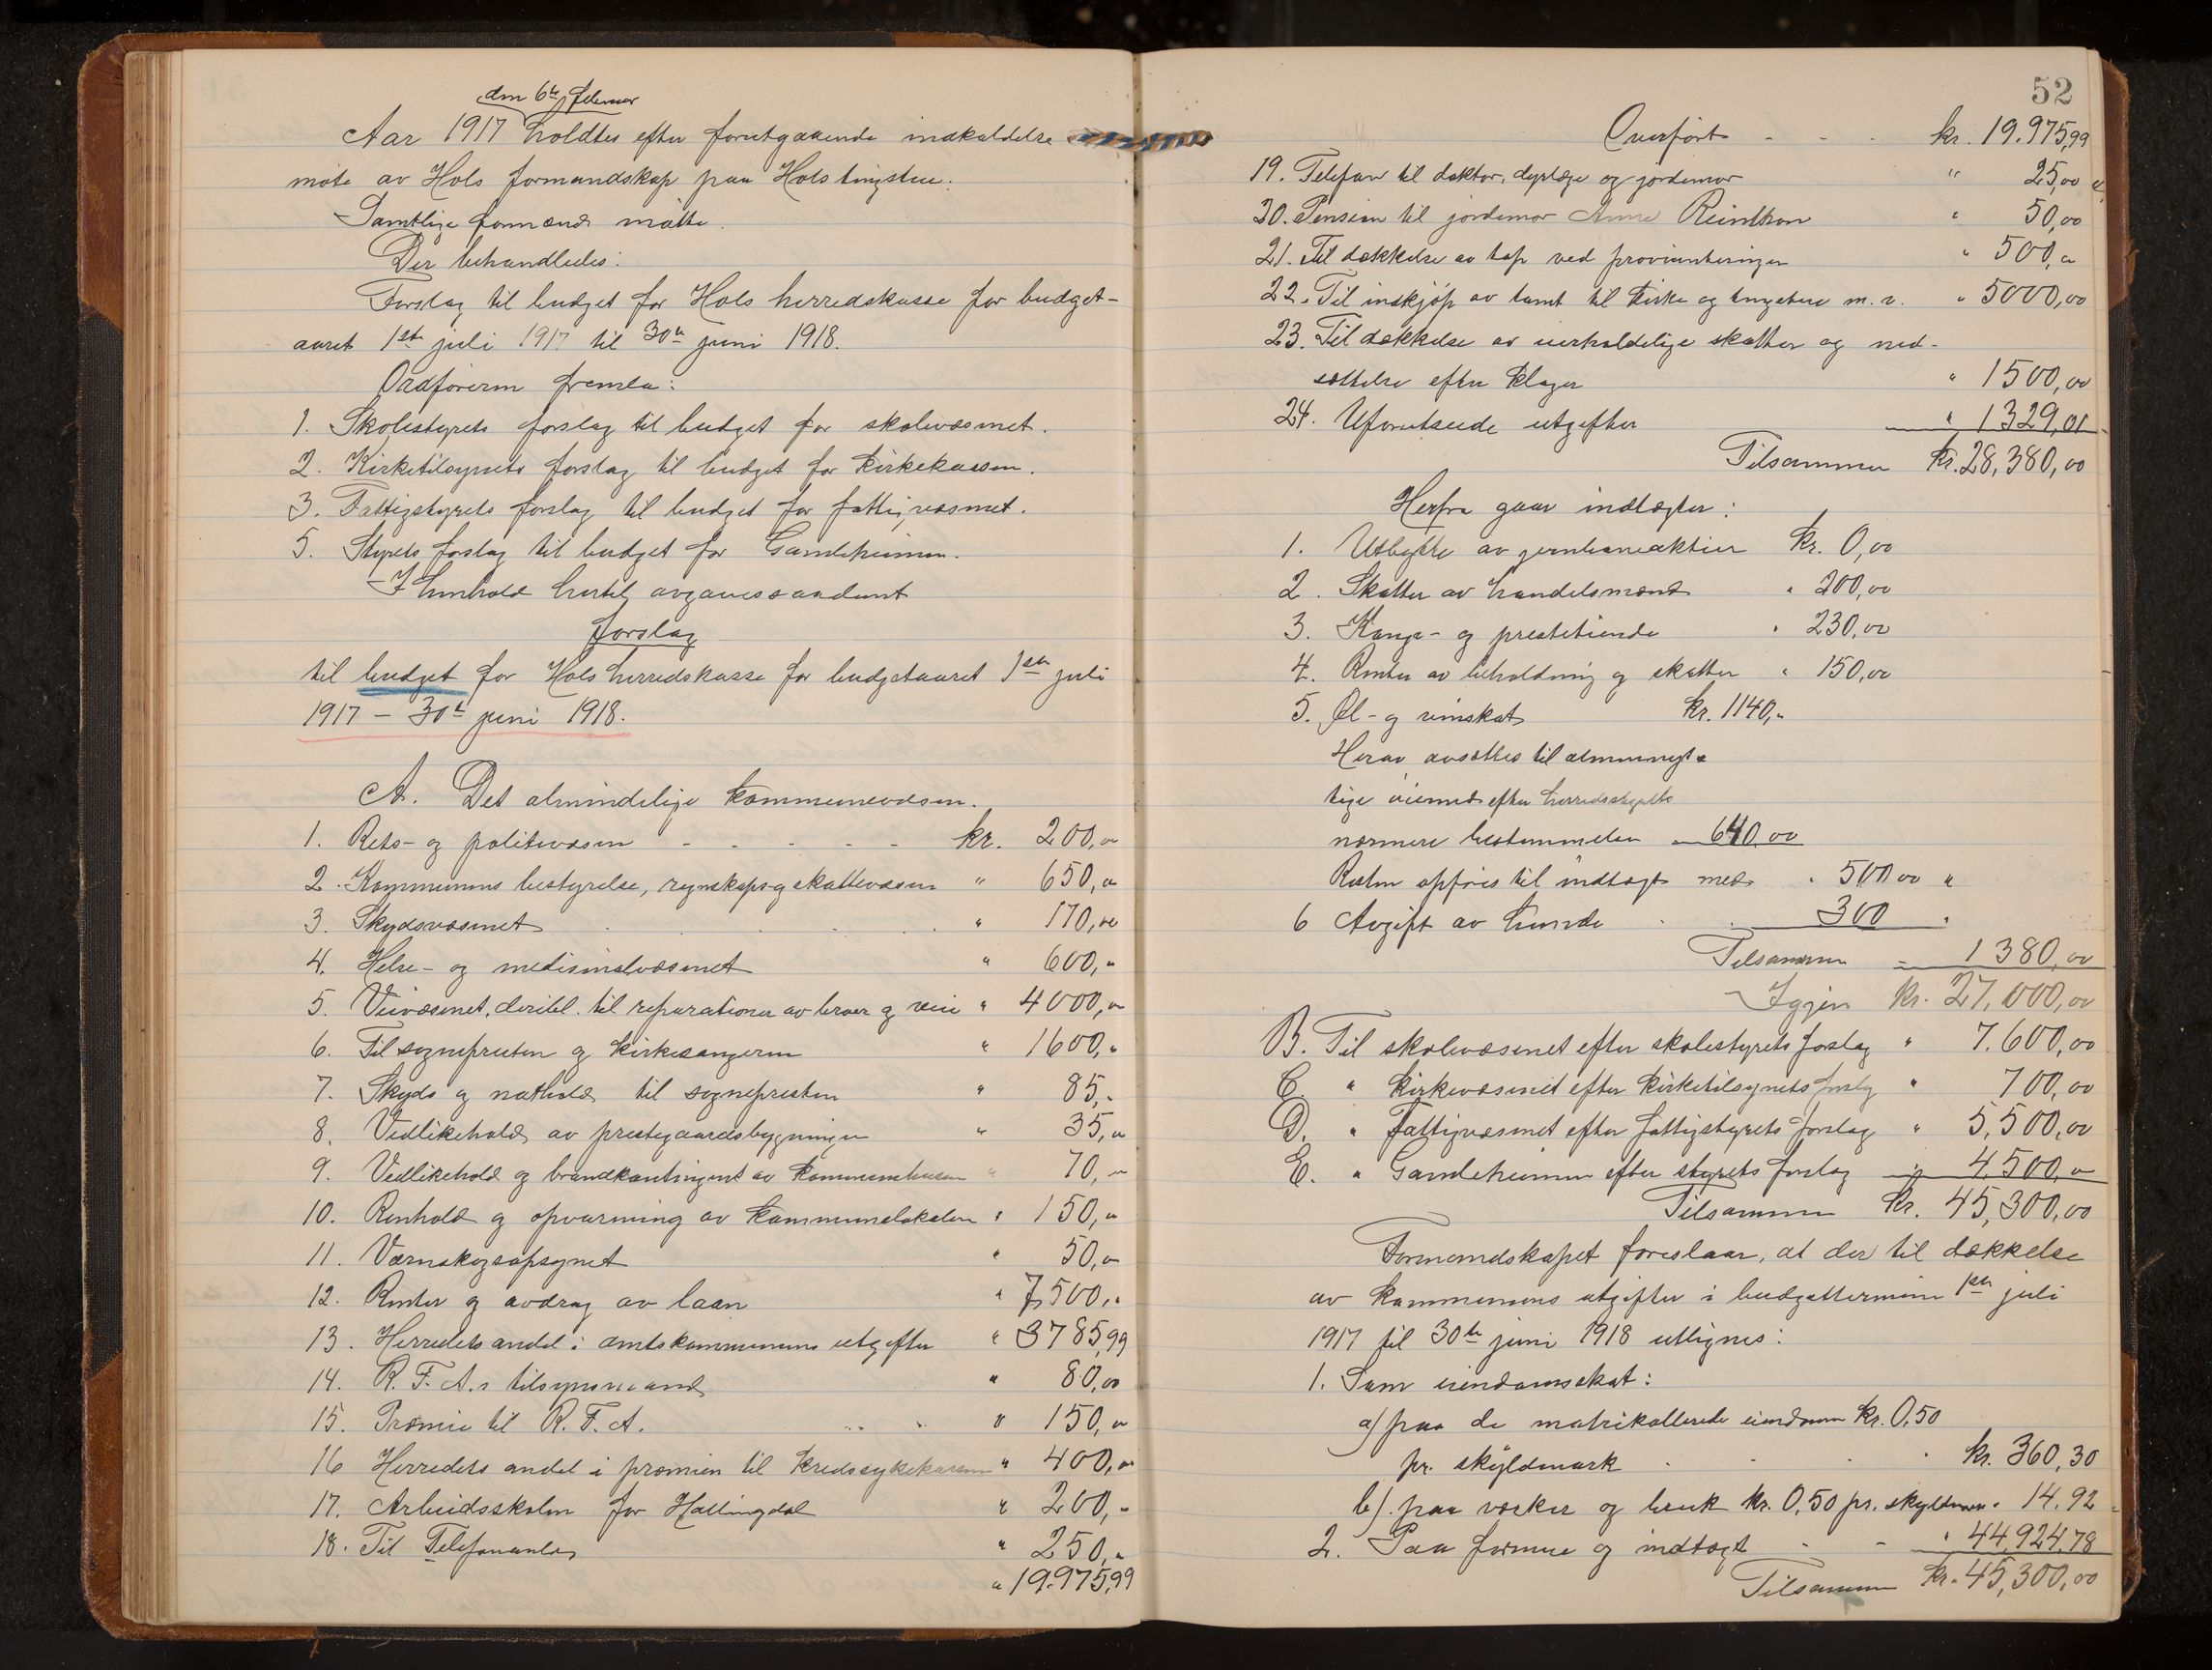 den 6te februar
Aar 1917 holdtes efter forutgaaende indkaldelse
møte av Hols formandskap paa Hols tingstue.
Samtlige formænd møtte.
Der behandledes:
Forslag til budget for Hols herredskasse for budget-
aaret 1ste juli 1917 til 30te juni 1918.
Ordføreren fremla:
1. Skolestyrets forslag til budget for skolevæsenet.
2. Kirketilsynets forslag til budget for kirkekassen.
3. Fattigstyrets forslag til budget for fattigvæsenet.
5. Styrets forslag til budget for Gamleheimen.
I henhold hertil avgaves saadant
forslag
til budget for Hols herredskasse for budgetaaret 1ste juli
1917 – 30te juni 1918.
A. Det almindelige kommunevæsen.
1. Rets- og politivæsen - - - - - kr. 200,00
2. Kommunens bestyrelse, regnskaps- og skattevæsen " 650,00
3. Skydsvæsenet " 170,00
4. Helse- og medisinalvæsenet " 600,"
5. Veivæsenet, deribl. til reparationer av broer og veie " 4000,00
6. Til sognepresten og kirkesangeren " 1600,"
7. Skyds og nathold til sognepresten " 85,"
8. Vedlikehold av prestegaardsbygninger " 35,00
9. Vedlikehold og brandkontingent av kommunehusene " 70,"
10. Renhold og opvarming av kommunelokaler " 150,"
11. Vernskogsopsynet " 50,00
12. Renter og avdrag av laan " 7,500,"
13. Herredets andel i amtskommunens utgifter " 3785,99
14. R. F. A.s tilsynsmand " 80,00
15. Præmie til R. F. A. " 150,00
16 Herredets andel i præmien til kredssykekassen " 400,00
17. Arbeidsskolen for Hallingdal " 200,"
18. Til Telefonanlæg " 250,"
" 19.975,99
52
Overført - - kr. 19.975,99
19. Telefon til doktor, dyrlæge og jordmor " 25,00
30. Pension til jordemor Anne Reinton " 50,00
21. Til dækkelse av tap ved provianteringen " 500,"
22. Til indkjøp av tomt til kirke og tingstue m. v. " 5000,00
23. Til dækkelse av uerholdelige skatter og ned-
sættelse efter klager " 1500,00
24. Uforutseede utgifter " 1329,01
Tilsammen kr. 28,380,00
Herfra gaar indtægter:
1. Utbytte av jernbaneaktier kr. 0,00
2. Skatter av handelsmænd " 200,00
3. Konge- og prestetiende " 230,00
4. Renter av beholdning og skatter " 150,00
5. Øl- og vinskat kr. 1140,"
Herav avsættes til almennyt-
tige øiemed efter herredsstyrets
nærmere bestemmelse " 640,00
Resten opføres til indtægt med " 500 00 "
6 Avgift av hunde 300 "
Tilsammen " 1 380,00
Igjen kr. 27,000,00
B. Til skolevæsenet efter skolestyrets forslag " 7.600,00
C. " kirkevæsenet efter kirketilsynets forslag " 700,00
D. " Fattigvæsenet efter fattigstyrets forslag " 5,500,00
E. " Gamleheimen efter styrets forslag " 4,500,"
Tilsammen kr. 45,300,00
Formandskapet foreslaar, at der til dækkelse
av kommunens utgifter i budgetterminen 1ste juli
1917 til 30te juni 1918 utlignes:
1. Som eiendomsskat:
a) paa de matrikulerede eiendomme kr. 0,50
pr. skyldmark kr. 360,30
b). paa verker og bruk kr. 0,50 pr. skyldmark " 14,92
2. Paa formue og indtægt - - " 44,924,78
Tilsammen kr. 45,300,00